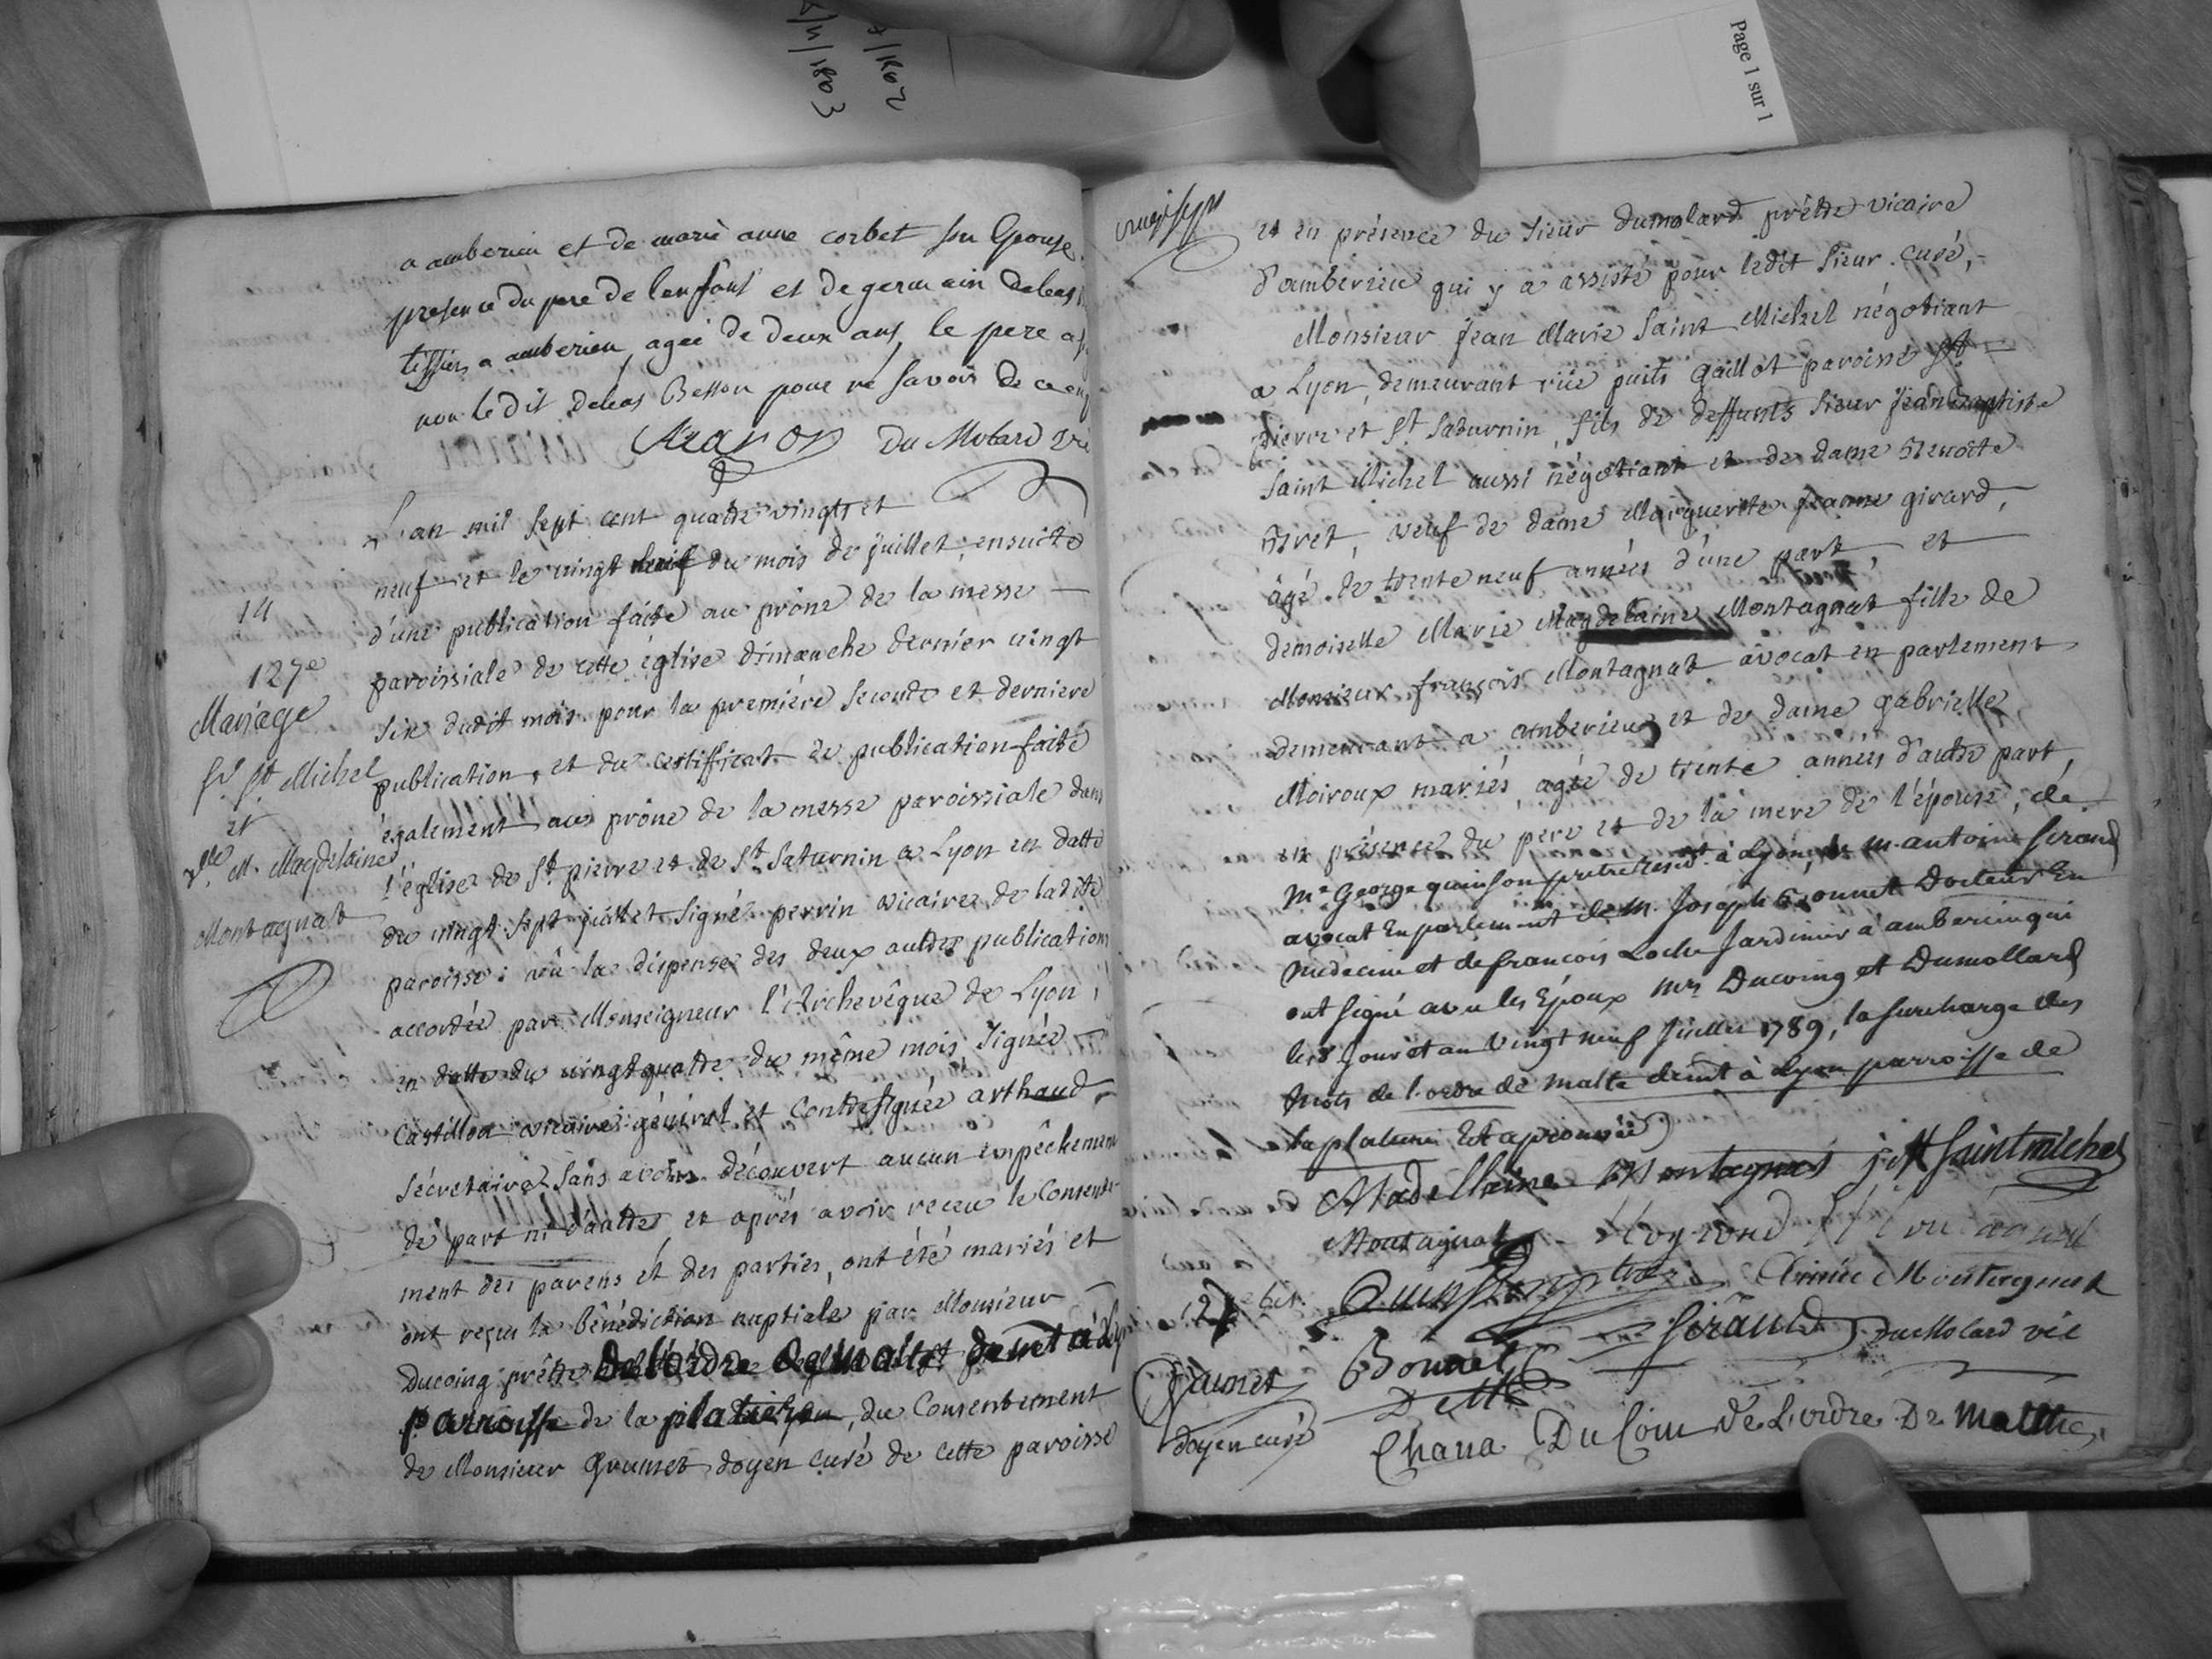 Page 1 sur 1
a amberieu et de marie anne corbet son Epouse
presence du pere de lenfant et de germain debeas
tissier a amberieu, agée de deux ans, le pere a
non le dit debeas Besson pour ne savoir de ce enq
Du Molard vre
L'an mil sept cent quatre vingts et
neuf et le vingt neuf du mois de juillet, ensuitte
d'une publication faitte au prône de la messe
paroissiale de cette église dimanche dernier vingt
six dudit mois pour la premiére seconde et derniere
publication, et du certifficat de publication faitte
également au prône de la messe paroissiale dans
l'église de St pierre et de St Saturnin a Lyon en datte
du vingt sept juillet signé perrin vicaire de ladite
paroisse : vû la dispense des deux autres publications
accordée par Monseigneur l'Archevêque de Lyon,
en datte du vingt quatre du même mois, signée
Castillon vicaire général et Contresignée arthaud
sécretaire sans avoir découvert aucun empêchement
de part ni d'autre, et aprés avoir receu le consente-
ment des parens et des parties, ont été mariés et
ont reçu la bénédiction nuptiale par Monsieur
Ducoing prêtre De l'ordre de Malte demt à Ly
parroisse de la platiere, du Consentement
de Monsieur Grumet doyen curé de cette paroisse
14
127e
Mariage
Sr St Michel
et
Dlle M. Magdelaine
Montagnat
et en présence du sieur dumolard prêtre vicaire
d'amberieu qui y a assisté pour ledit sieur curé,
Monsieur Jean Marie Saint Michel négotiant
a Lyon, demeurant rüe puits gaillot paroisse St
pierre et St Saturnin, fils de deffunts sieur Jean Baptiste
Saint Michel aussi négotiant et de dame Benoite
Biret, veuf de dame Marguerite Jeanne girard,
âgé de trente neuf années d'une part, et
demoiselle Marie Magdelaine Montagnat fille de
Monsieur françois Montagnat avocat en parlement
demeurant a amberieu et de dame gabrielle
Moiroux mariés, agée de trente années d'autre part,
en présence du pere et de la mere de l'épouse, de
Mre George quinson pretre resid.t à Lyon, de m. antoine sirand
avocat En parlement de M. Joseph Bonnet Docteur En
Medecine et de francois Loche Jardinier à amberieu qui
ont signé avec les Epoux Mrs Ducoing et Dumollard
les Jour et an Vingt neuf Juillet 1789, la surcharge des
mots de l'ordre de Malte demt à Lyon parroisse de
la platiere Est aprouvée
Madellaine Montagnat j: M Saintmichel
Montagnat
127 bis
Aimée Montagnat
Sirand
DuMolard vic
Grumet
Bonnet
D M
doyen curé
Chana Du Coin de L'ordre De Malthe